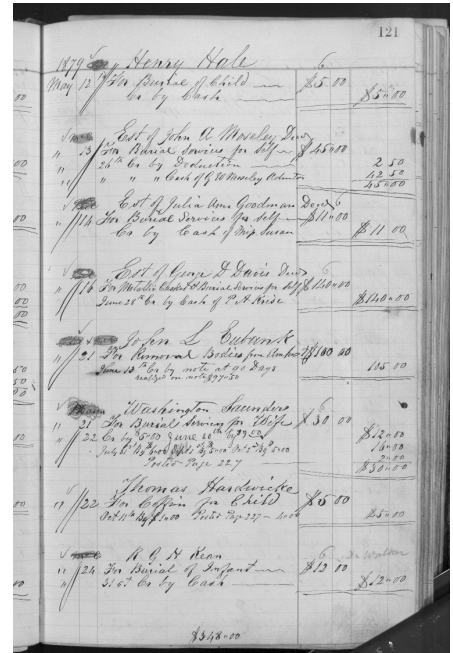 121
1879 Henry Hale 6
May 12 For Burial of Child $5.00
Cr by Cash $5.00
Est of John A Moseley Decd
" 13 For Burial Services for self $45.00
24th Cr by Deduction 2 50
" " " Cash of G W Moseley Admtor 42 50
45.00
Est of Julia Ann Goodman Decd 6
" 14 For Burial Services for self $11.00
Cr by Cash of Miss Susan $11 00
Est of George D Davis Decd 6
" 16 For Metallic Casket & Burial Services for self $140.00
June 28th Cr by Cash of P A $140.00
John L Eubank
" 21 For Removal Bodies from $100 00
June 13th Cr by note at 90 Days 105 00
realized on note $97.50
Washington Saunders 6
" 21 For Burial Services for Wife $30 00
" 22 Cr by $5.00 June $12.00
July 16.00
2.00
Posted Page 227 $30.00
Thomas Hardwicke
" 22 For Coffin for Child $5 00
Oct 11th By $1.00 Posted Page 227 - 4.00 $5.00
R G H Kean 6 Dr Walker
" 24 For Burial of Infant $12 00
" 31st Cr by Cash $12.00
$348.00